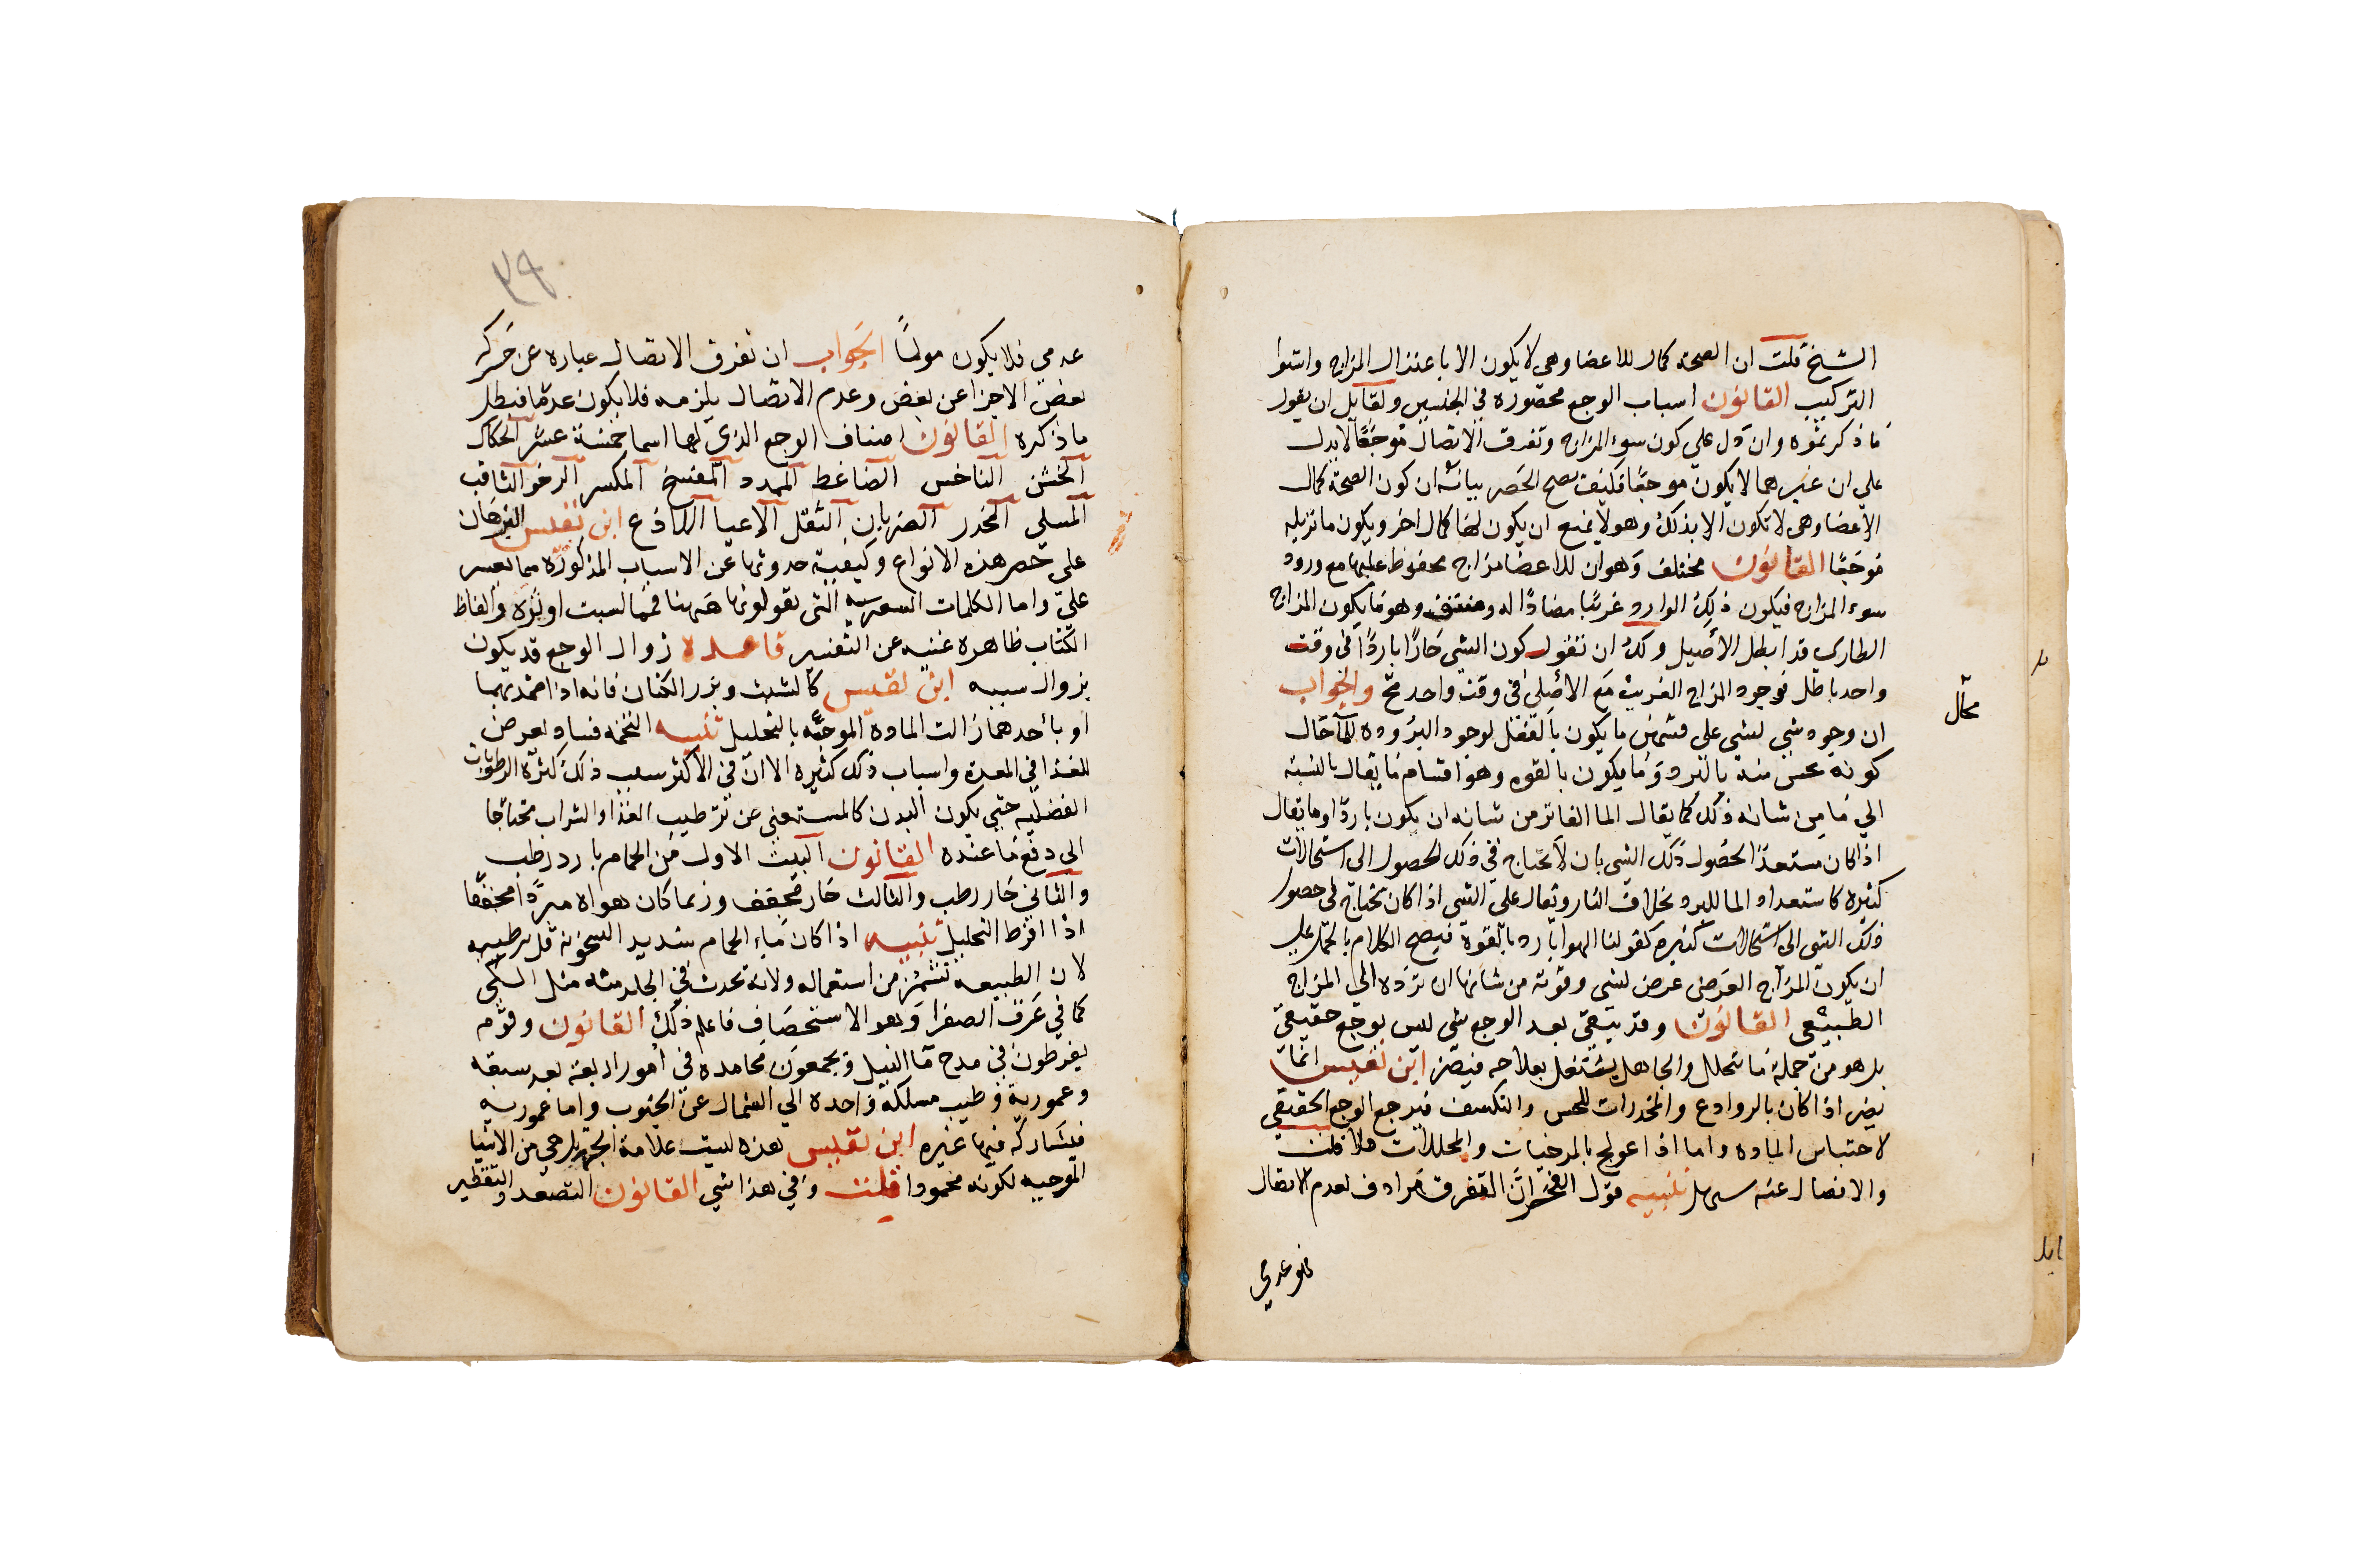 الشيخ قلت ان الصحة كمال للاعضا وهى لا يكون الا باعتدال المزاج واستوا
التركيب القانون اسباب الوجع محصوره في الجنسين ولقايل ان يقول
ما ذكرتموه وان دل علي كون سوء المزاج وتفرق الاتصال موجعًا لا يدل
علي ان غيرهما لا يكون موجعًا فكيف يصح الحصر بيانه ان كون الصحة كمال
الاعضا وهى لا تكون الا بذلك وهو لا يمنع ان يكون لها كمال اخر ويكون ما تزيله
موجعًا القانون مختلف وهو ان للاعضا مزاج محفوظ عليها مع ورود
سوء المزاج فيكون ذلك الوارد غريبًا مضادًا له ومتفق وهو ما يكون المزاج
الطارى قد ابطل الأصيل ولك ان تقول كون الشى حارًا باردًا فى وقت
واحد باطل فوجود المزاج الغريب مع الأصلى فى وقت واحد مح والجواب
محال
ان وجود شى لشى على قسمين ما يكون بالفعل لوجود البروده للما حال
كونه يحس منه بالبرد وما يكون بالقوه وهو اقسام ما يقال بالنسبه
الي ما من شانه ذلك كما يقال الما الفاتر من شانه ان يكون باردًا وما يقال
اذا كان مستعدًا لحصول ذلك الشى بان لا يحتاج في ذلك الحصول الى استحالات
كثيره كاستعداد الما للبرد بخلاف النار ويقال على الشى اذا كان يحتاج فى حصول
ذلك الشى الى استحالات كثيره كقولنا الهوا بارد بالقوة فيصح الكلام بالحمل علي
ان يكون المزاج العرضى عرض لشى وقوته من شانها ان ترده الي المزاج
الطبيعي القانون وقد يبقى بعد الوجع شى ليس بوجع حقيقي
بل هو من جملة ما تحلل والجاهل يشتغل بعلاجه فيضر ابن نفيس انما
يضر اذا كان بالروادع والمخدرات للحس والتكثيف فيرجع الوجع الحقيقي
لاحتباس الماده واما اذا عولج بالمرخيات والمحللات فلا قلت
والانفصال عنه سهل تنبيه قول الفخر ان التفرق مرادف لعدم الاتصال
فهو عدمي
٣٩
عدمي فلا يكون مولمًا الجواب ان تفرق الاتصال عباره عن حركة
بعض الاجزا عن بعض وعدم الاتصال يلزمه فلا يكون عدمًا فبطل
ما ذكره القانون اصناف الوجع الذي لها اسما خمسة عشر الحكاك
الخشن الناخس الضاغط الممدد المفسخ المكسر الرخو الثاقب
المسلى المخدر الضربانى الثقل الاعيا اللاذع ابن نفيس البرهان
على حصر هذه الانواع وكيفية حدوثها عن الاسباب المذكورة مما يعسر
عليّ واما الكلمات الشعريه التى يقولونها ههنا فمما لست اوثره والفاظ
الكتاب ظاهره غنيه عن التفسير قاعدة زوال الوجع قد يكون
بزوال سببه ابن نفيس كالشبث وبزر الكتان فانه اذا ضمد بهما
او بأحدهما زالت المادة الموجعه بالتحليل تنبيه التخمه فساد يعرض
للغذا في المعدة واسباب ذلك كثيره الا انّ في الاكثر سبب ذلك كثرة الرطوبات
الفضليه حتي يكون البدن كالمستغني عن ترطيب الغذا والشراب محتاجا
الى دفع ما عنده القانون البيت الاول من الحمام بارد رطب
والثانى حار رطب والثالث حار مجفف وربما كان هواه مبردًا مجففًا
اذا افرط التحليل تنبيه اذا كان ماء الحمام شديد السخونه قل ترطيبه
لان الطبيعه تشمئز من استعماله ولانه تحدث في الجلد مثله مثل الكى
كما في عرق الصفرا وهو الاستحصاف فاعلم ذلك القانون وقوم
يفرطون في مدح ما النيل ويجمعون محامده في امور اربعه بعد سبقه
وعموربة وطيب مسلكه واخده الي الشمال عن الجنوب واما عموريه
فيشاركه فيها غيره ابن نفيس هذه ليست علامة الجهه بل هي من الاشيا
الموجبه لكونه محمودا قلت وفي هذا شى القانون التصعد والتقطير